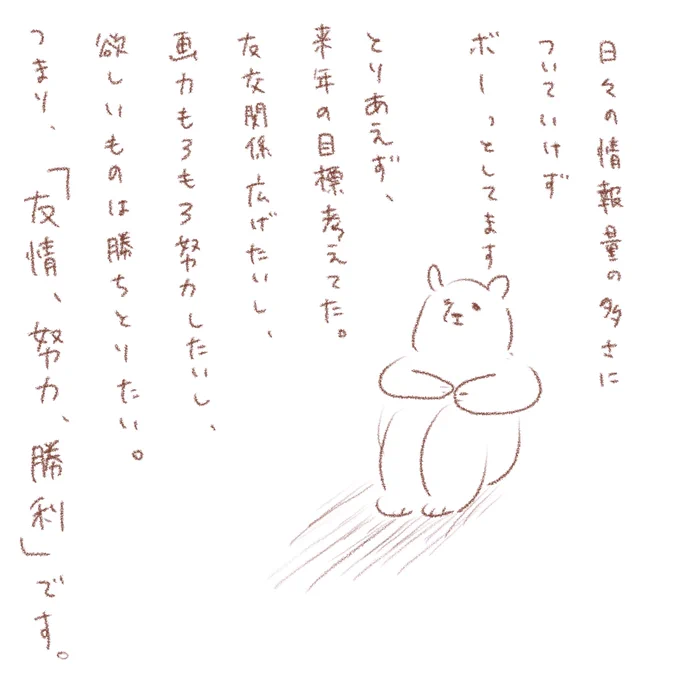 日々の情報量の多さに
ついていけず
ボーっとしてます
とりあえず、
来年の目標考えてた。
友交関係広げたいし、
画力もろもろ努力したいし、
欲しいものは勝ちとりたい。
つまり、「友情、努力、勝利」です。